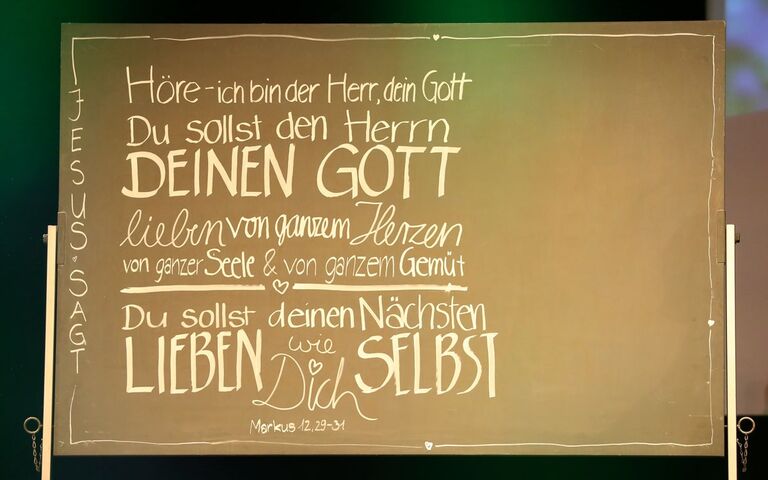 JESUS SAGT
Höre - ich bin der Herr, dein Gott
Du sollst den Herrn
DEINEN GOTT
lieben von ganzem Herzen
von ganzer Seele & von ganzem Gemüt
Du sollst deinen Nächsten
LIEBEN wie Dich SELBST
Markus 12, 29-31